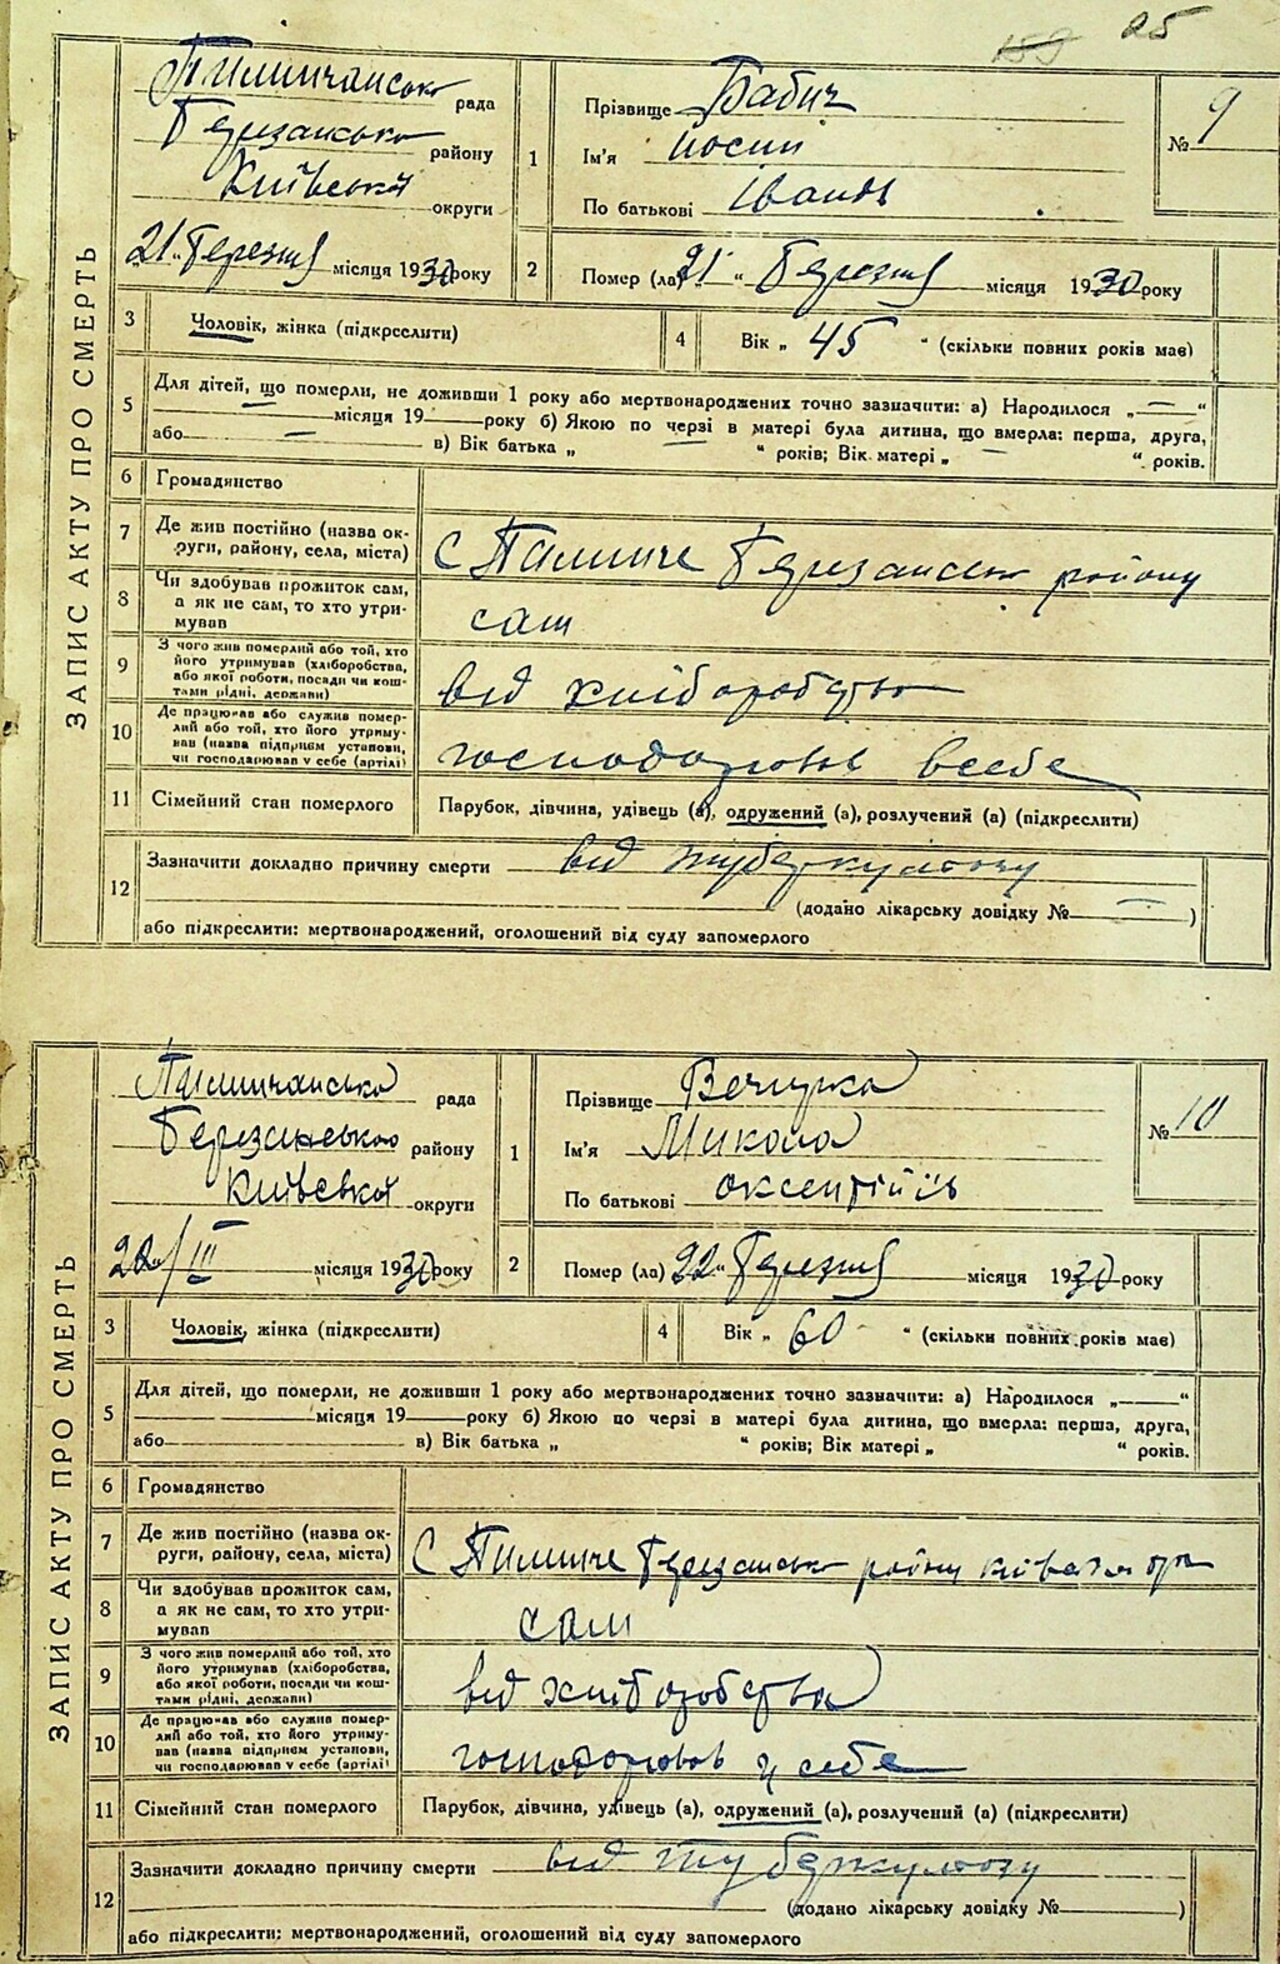 159 25
ЗАПИС АКТУ ПРО СМЕРТЬ
Пилиичансько рада
Березансько району
Київської округи
21 " Березня місяця 1930 року
1
Прізвище Бабич
Ім'я Йосип
По батькові Іванів
№ 9
2
Помер (ла) 21 " Березня місяця 1930 року
3 Чоловік, жінка (підкреслити)
4 Вік „ 45 " (скільки повних років має)
5 Для дітей, що померли, не доживши 1 року або мертвонароджених точно зазначити: а) Народилося „ — "
місяця 19 року б) Якою по черзі в матері була дитина, що вмерла: перша, друга,
або — в) Вік батька „ " років; Вік матері „ — " років.
6 Громадянство
7 Де жив постійно (назва ок-
руги, району, села, міста) С Пиличе Березансько району
8 Чи здобував прожиток сам,
а як не сам, то хто утри-
мував сам
9 З чого жив померлий або той, хто
його утримував (хліборобства,
або якої роботи, посади чи кош-
тами рідні, держави) від хліборобства
10 Де працював або служив помер-
лий або той, хто його утриму-
вав (назва підприєм установи,
чи господарював у себе (артілі) господорював всебе
11 Сімейний стан померлого Парубок, дівчина, удівець (а), одружений (а), розлучений (а) (підкреслити)
12 Зазначити докладно причину смерти від туберкульозу
(додано лікарську довідку № — )
або підкреслити: мертвонароджений, оголошений від суду запомерлого
ЗАПИС АКТУ ПРО СМЕРТЬ
Пилиичансько рада
Березанського району
Київської округи
22 " / III місяця 1930 року
1
Прізвище Вечирка
Ім'я Микола
По батькові Оксентіїв
№ 10
2
Помер (ла) 22 " Березня місяця 1930 року
3 Чоловік, жінка (підкреслити)
4 Вік „ 60 " (скільки повних років має)
5 Для дітей, що померли, не доживши 1 року або мертвонароджених точно зазначити: а) Народилося „ "
місяця 19 року б) Якою по черзі в матері була дитина, що вмерла: перша, друга,
або в) Вік батька „ " років; Вік матері „ " років.
6 Громадянство
7 Де жив постійно (назва ок-
руги, району, села, міста) С Пиличе Березансько району
8 Чи здобував прожиток сам,
а як не сам, то хто утри-
мував сам
9 З чого жив померлий або той, хто
його утримував (хліборобства,
або якої роботи, посади чи кош-
тами рідні, держави) від хліборобства
10 Де працював або служив помер-
лий або той, хто його утриму-
вав (назва підприєм установи,
чи господарював у себе (артілі) господорював у себе
11 Сімейний стан померлого Парубок, дівчина, удівець (а), одружений (а), розлучений (а) (підкреслити)
12 Зазначити докладно причину смерти від туберкульозу
(додано лікарську довідку № )
або підкреслити: мертвонароджений, оголошений від суду запомерлого